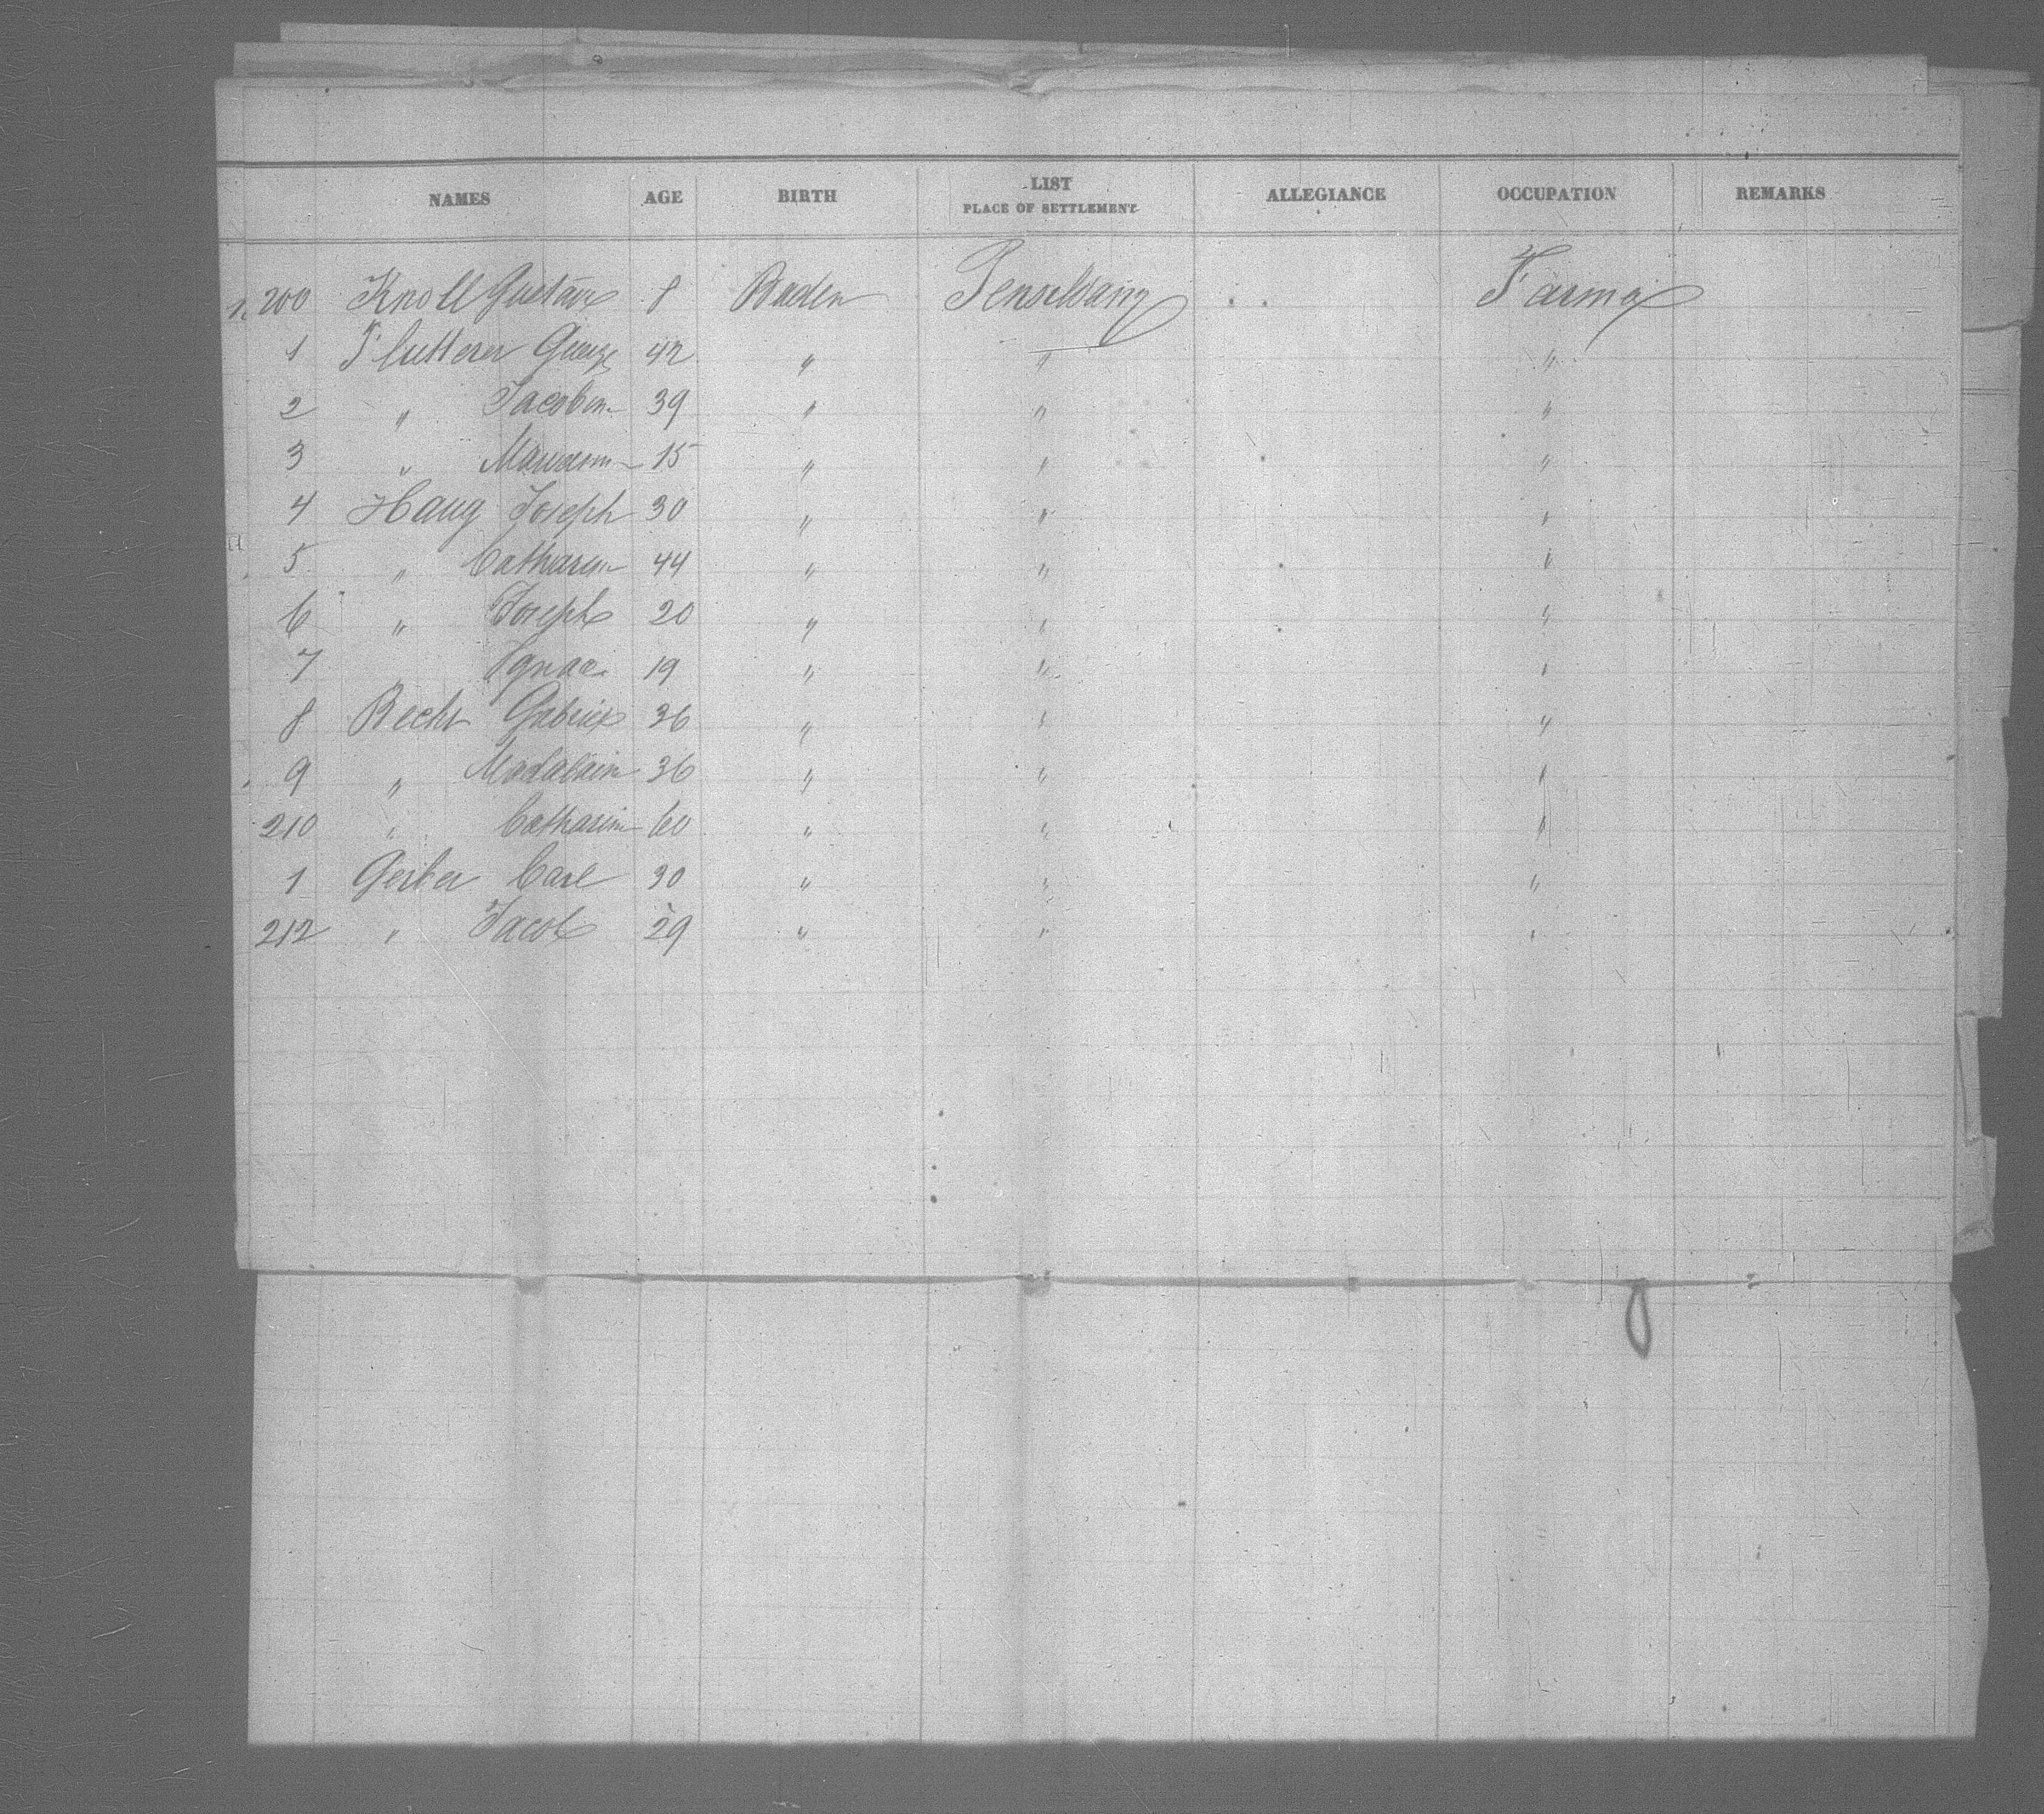 NAMES AGE BIRTH LIST PLACE OF SETTLEMENT ALLEGIANCE OCCUPATION REMARKS
200 Knoll Gustav 8 Baden Penselvany Farmer
1 Flutterer George 42 " " "
2 " Jacobin 39 " " "
3 " 15 " " "
4 Haug Joseph 30 " " "
5 " Catharin 44 " " "
6 " Joseph 20 " " "
7 " Ignac 19 " " "
8 Becht Gabriel 36 " " "
9 " Madalain 36 " " "
210 " Catharin 60 " " "
1 Gerber Carl 30 " " "
212 " Jacob 29 " " "